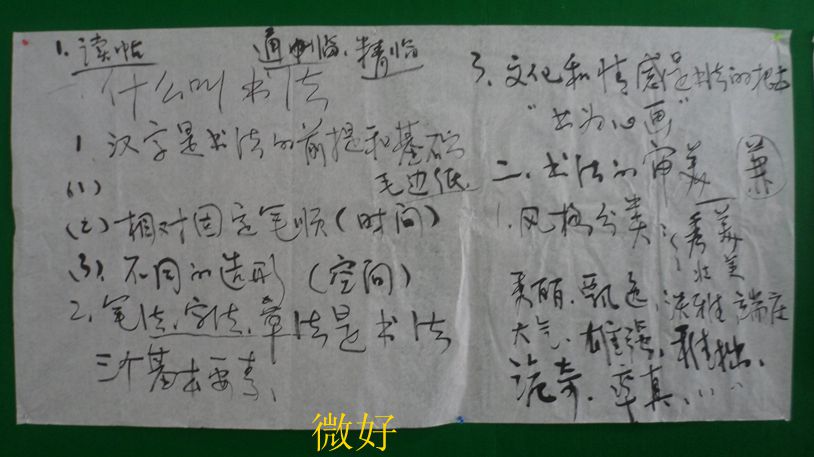 1. 读帖 通临、精临
一 什么叫书法
1. 汉字是书法的前提和基础
毛边纸
(1)
(2) 相对固定笔顺(时间)
(3). 不同的造形(空间)
2. 笔法、字法、章法是书法
三个基本要素、
3、文化和情感是书法的
"书为心画"
二、书法的审美
1. 风格分类:
秀美
壮美
秀丽、飘逸、淡雅 端庄
大气、雄强、稚拙、
诡奇、率真、……
微好